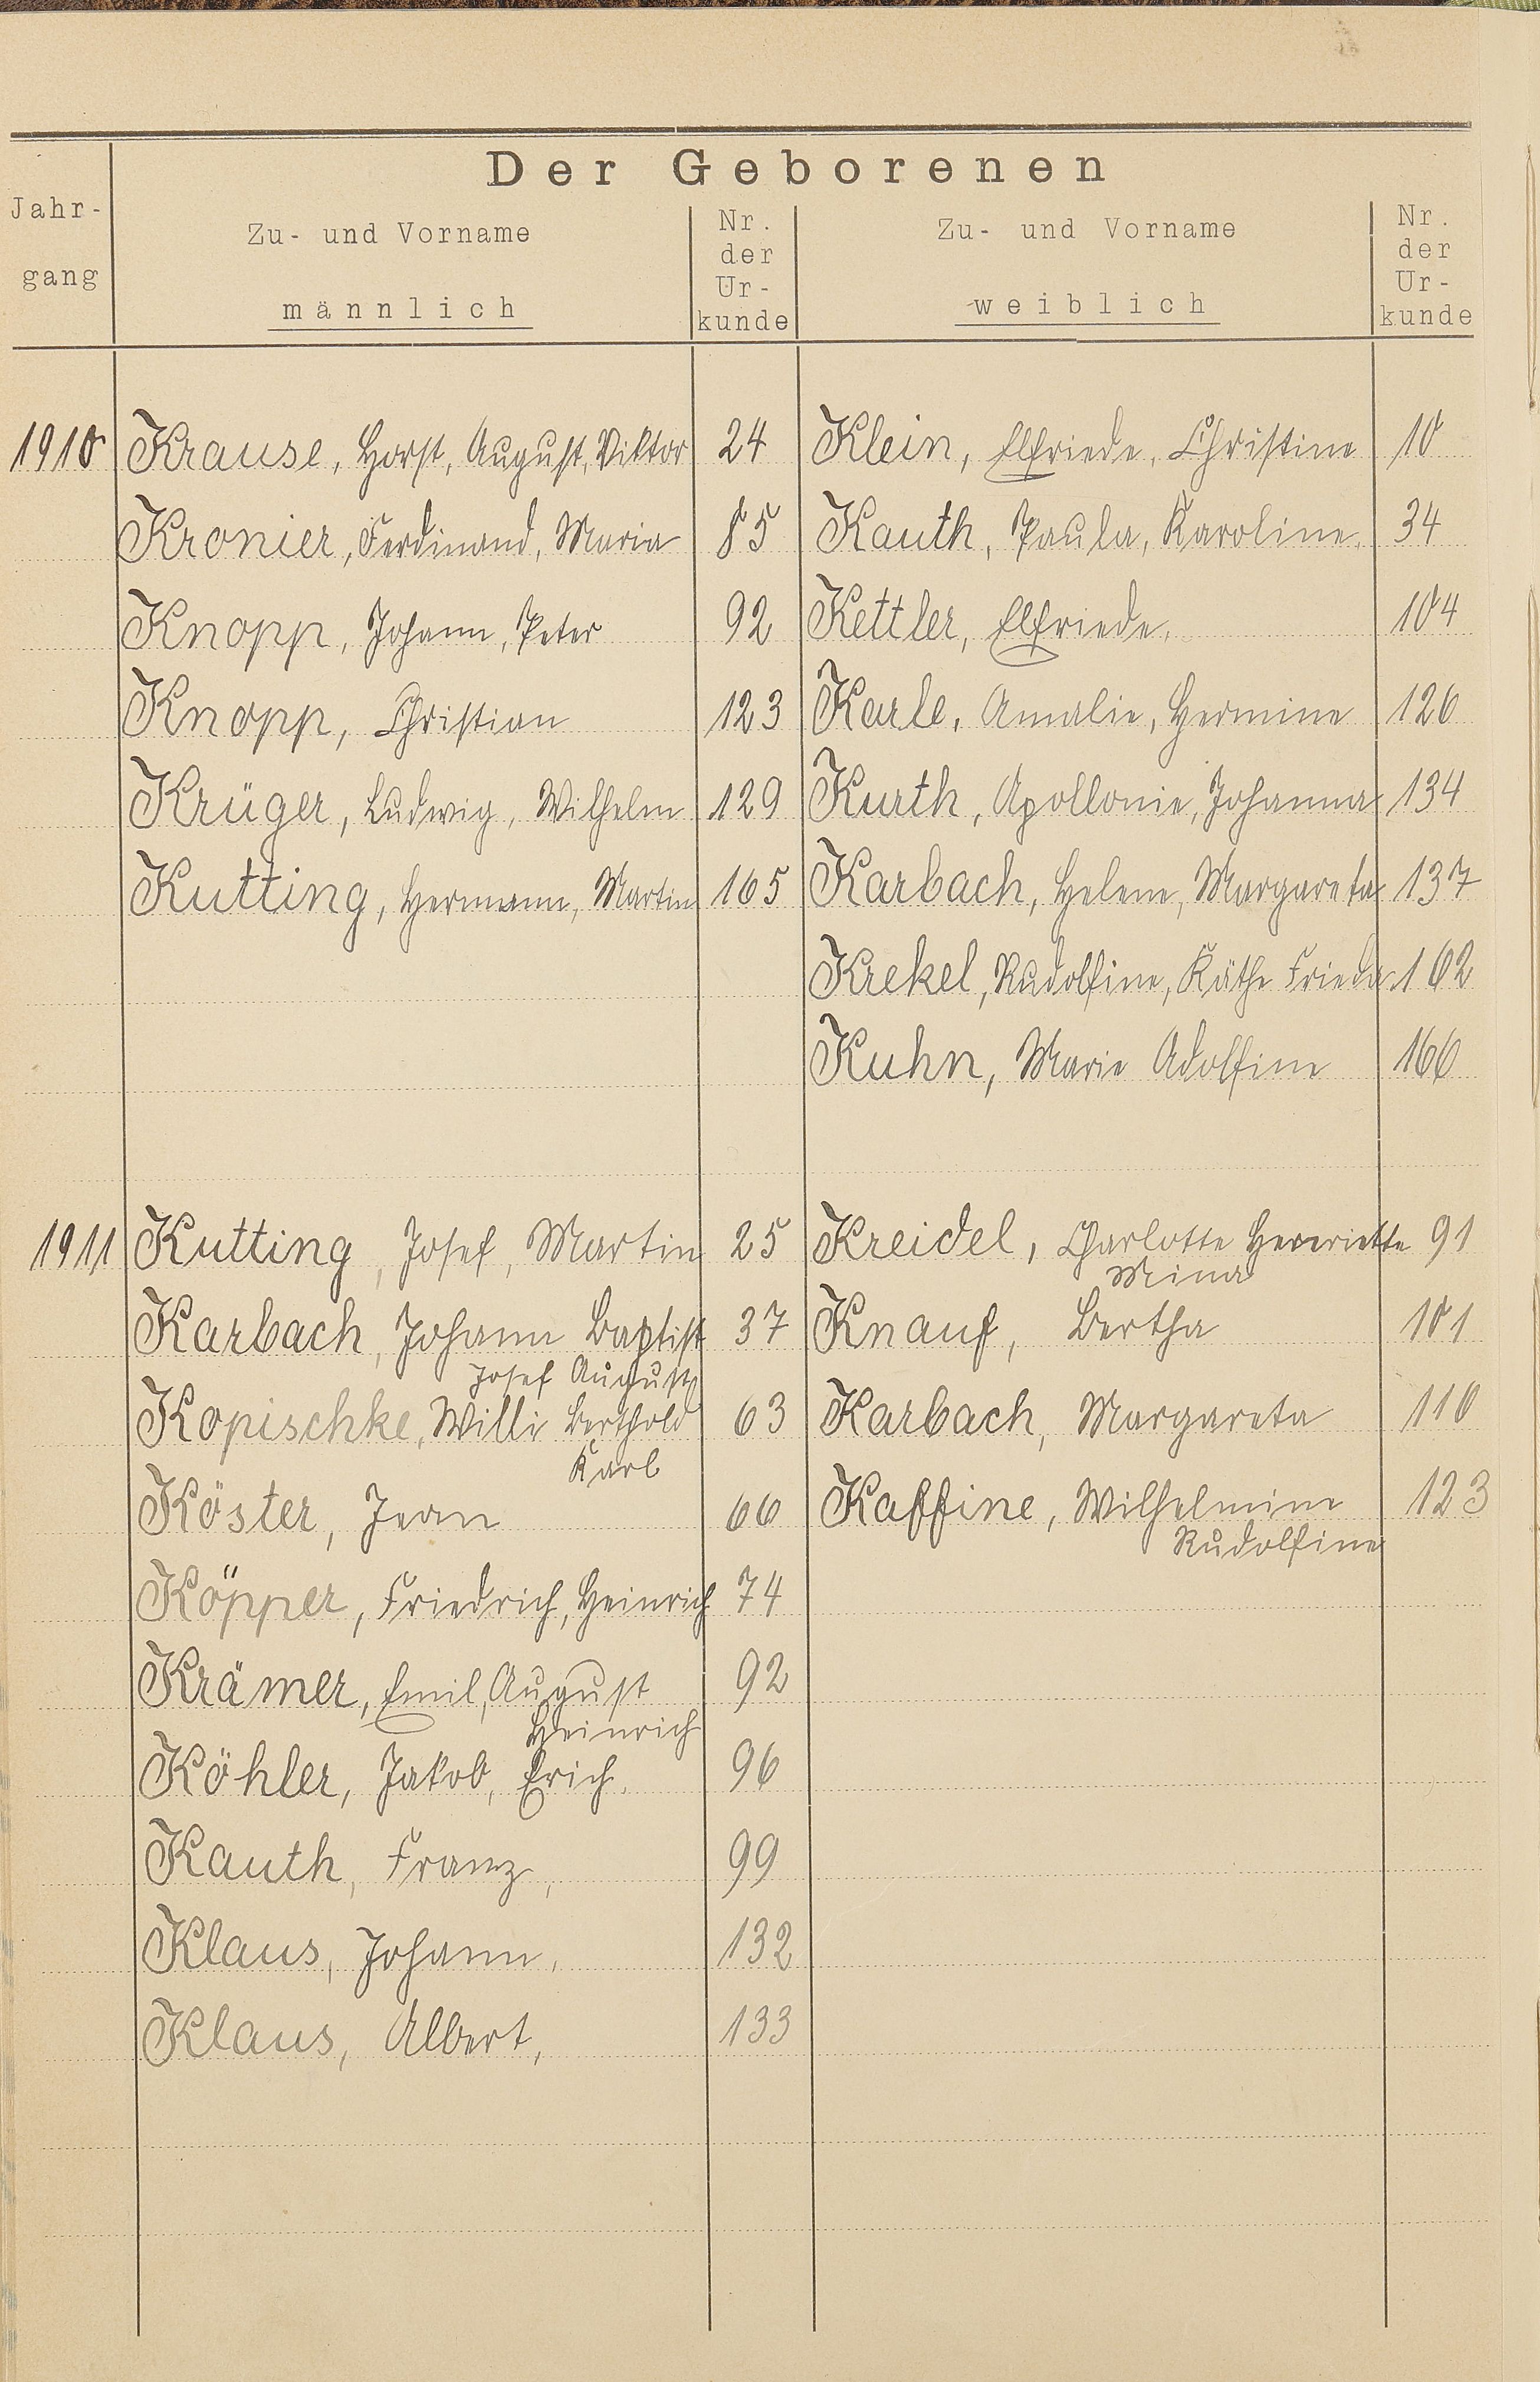 Der Geborenen
Jahr-
gang
Zu- und Vorname
männlich
Nr.
der
Ur-
kunde
Zu- und Vorname
weiblich
Nr.
der
Ur-
kunde
1910 Krause, Horst, August, Viktor 24 Klein, Elfriede, Christine 10
Kronier, Ferdinand, Maria 85 Kauth, Paula, Karoline, 34
Knopp, Johann, Peter 92 Kettler, Elfriede, 104
Knopp, Christian 123 Karle, Amalie, Hermine 126
Krüger, Ludwig, Wilhelm 129 Kurth, Apollonie, Johanna 134
Kutting, Hermann, Martin 165 Karbach, Helene, Margareta 137
Krekel, Rudolfine, Käthe Frieda 162
Kuhn, Marie Adolfine 166
1911 Kutting, Josef, Martin 25 Kreidel, Charlotte Henriette 91
Mina
Karbach, Johann Baptist 37 Knauf, Bertha 101
Josef August
Kopischke, Willi Berthold 63 Karbach, Margareta 110
Karl
Köster, Jean 66 Kaffine, Wilhelmine 123
Rudolfine
Köpper, Friedrich, Heinrich 74
Krämer, Emil, August 92
Heinrich
Köhler, Jakob, Erich. 96
Kauth, Franz, 99
Klaus, Johann, 132
Klaus, Albert, 133